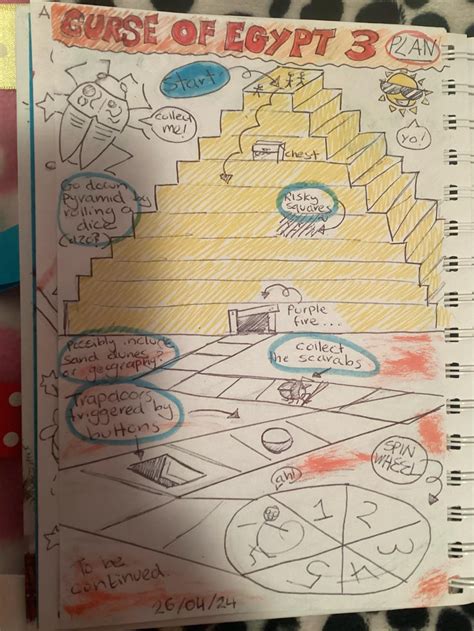 A
CURSE OF EGYPT 3
PLAN
Start
collect
me!
yo!
chest
Go down
pyramid
rolling a
dice
(d20?)
Risky
squares
Purple
fire...
Possibly include
sand dunes?
or geography?
collect
the scarabs
Trapdoors,
triggered by
buttons
SPIN
WHEEL
ah!
1
2
3
4
5
To be
continued
26/04/24